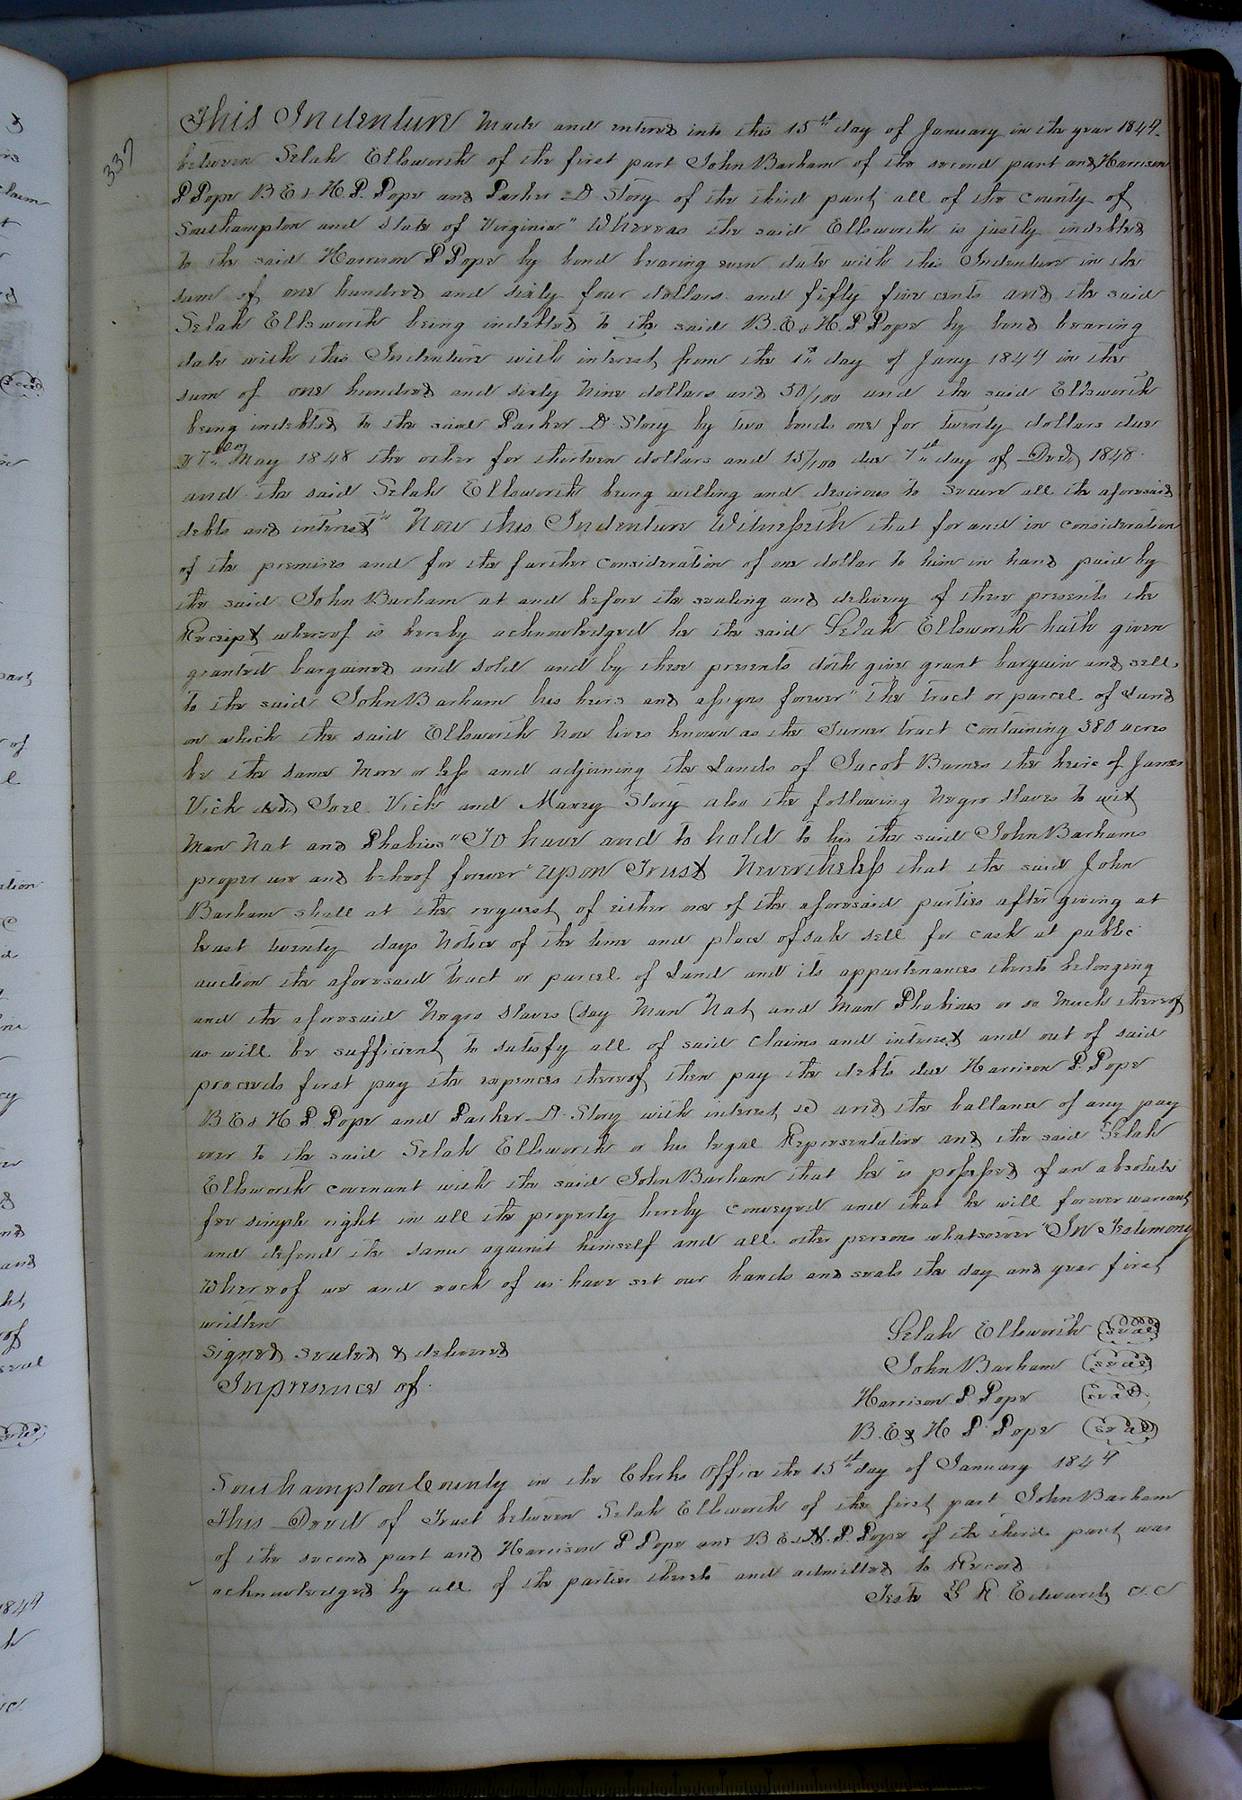 337
This Indenture Made and entered into this 15th day of January in the year 1849
between Selah Ellsworth of the first part John Barham of the second part and Harrison
P Pope B E & H. P. Pope and Parker D Story of the third part all of the County of
Southampton and State of Virginia" Whereas the said Ellsworth is justly indebted
to the said Harrison P Pope by bond bearing even date with this Indenture in the
sum of one hundred and sixty four dollars and fifty five cents and the said
Selah Ellsworth being indebted to the said B. E & H. P Pope by bond bearing
date with this Indenture with interest from the 1st day of Jany 1849 in the
sum of one hundred and sixty Nine dollars and 50/100 and the said Ellsworth
being indebted to the said Parker D. Story by two bonds one for twenty dollars due
May 1848 the other for thirteen dollars and 15/100 due 7th day of Decr 1848
and the said Selah Ellsworth being willing and desirous to secure all the aforesaid
debts and interest" Now this Indenture Witnesseth that for and in consideration
of the premises and for the further consideration of one dollar to him in hand paid by
the said John Barham at and before the sealing and delivery of these presents the
Receipt whereof is hereby acknowledged he the said Selah Ellsworth hath given
granted bargained and sold and by these presents doth give grant bargain and sell
to the said John Barham his heirs and assigns forever" the tract or parcel of Land
on which the said Ellsworth Now lives known as the Turner tract Containing 380 acres
be the same More or less and adjoining the Lands of Jacob Barnes the heirs of James
Vick decd Joel Vick and Maxey Story also the following Negro Slaves to wit
Man Nat and Phabius "To have and to hold to his the said John Barhams
proper use and behoof forever" upon Trust Nevertheless that the said John
Barham shall at the request of either one of the aforesaid parties after giving at
least twenty days Notice of the time and place of sale sell for cash at public
auction the aforesaid tract or parcel of Land and its appurtenances thereto belonging
and the aforesaid Negro Slaves (say Man Nat and Man Phabius or so Much thereof
as will be sufficient to satisfy all of said Claims and interest and out of said
proceeds first pay the expences thereof then pay the debts due Harrison P. Pope
B E & H P Pope and Parker D. Story with interest and the ballance of any pay
over to the said Selah Ellsworth or his legal Representative and the said Selah
Ellsworth covenant with the said John Barham that he is possessed of an absolute
fee simple right in all the property hereby Conveyed and that he will forever warrant
and defend the same against himself and all other persons whatsoever "In Testimony
Whereof we and each of us have set our hands and seals the day and year first
written
Signed sealed & delivered
In presence of
Selah Ellsworth (seal)
John Barham (seal)
Harrison P. Pope (seal)
B. E & H P. Pope (seal)
Southampton County in the Clerks Office the 15th day of January 1849
This Deed of Trust between Selah Ellsworth of the first part John Barham
of the second part and Harrison P Pope and B E & H. P. Pope of the third part was
acknowledged by all of the parties thereto and admitted to Record
Teste L R Edwards C. C